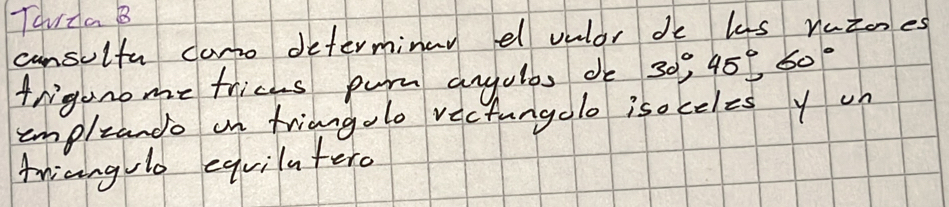 Tarea 3
consulta como determinar el valor de las razones
trigonometricas para angulos de 30°, 45°, 60°
empleando un triangulo rectangulo isoceles y un
triangulo equilatero